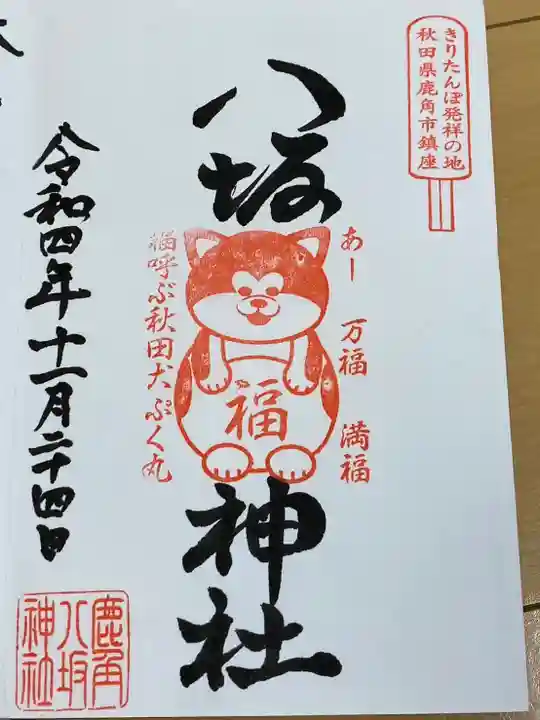 きりたんぽ発祥の地
秋田県鹿角市鎮座
八坂神社
あー 万福 満福
福
福呼ぶ秋田犬ぷく丸
令和四年十一月二十四日
鹿角
八坂
神社